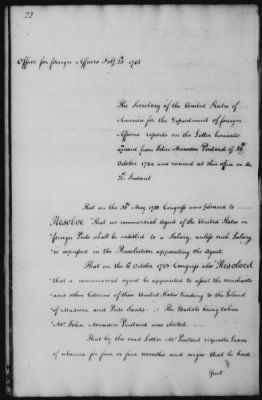 22
Office for foreign Affairs Feby 23 1785
The Secretary of the United States of
America for the Department of foreign
Affairs reports on the Letter hereunto
annexed from John Marsden Pintard of 26th
October 1784 and received at this Office on the
Instant
That on the May 1783 Congress was pleased to
Resolve That no commercial Agent of the United States in
foreign Ports shall be entitled to a Salary, unless such Salary
is expressed in the Resolution appointing the Agent.
That on the October 1783 Congress also Resolved
that a commercial agent be appointed to assist the merchants
and other Citizens of these United States trading to the Island
of Madeira and Porto Santo. The Ballots being taken
Mr John Marsden Pintard was elected
That by the said Letter Mr Pintard requests Leave
of absence for four or five months and urges that he had
just